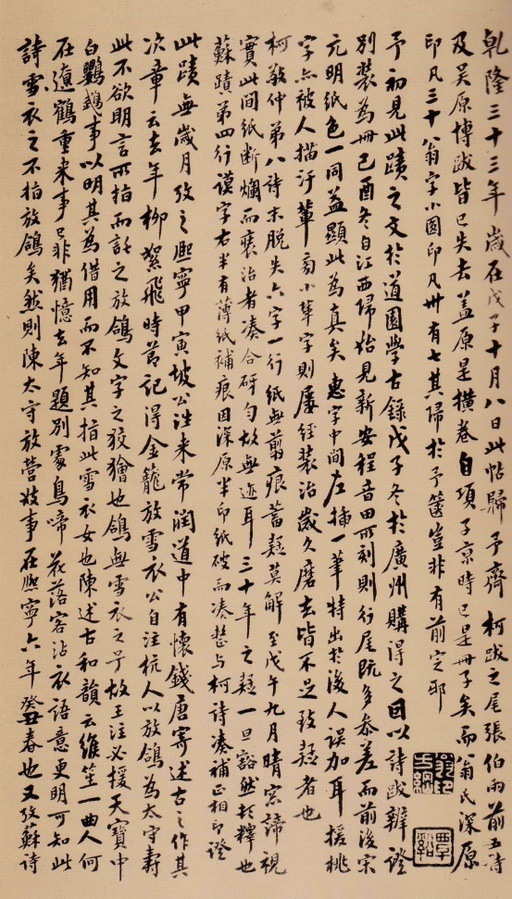 乾隆三十三年歲在戊子十月八日此帖歸予齋柯跋之尾張伯雨前五詩
及吳原博跋皆已失去蓋原是橫卷自項子京時已是冊子矣而翁氏深原
印凡三十八翁字小圓印凡卅有七其歸於予篋豈非有前定耶
予初見此蹟之文於道園學古錄戊子冬於廣州購得之因以詩跋辨證
別裝為冊己酉冬自江西歸始見新安程音田所刻則行尾既多參差而前後宋
元明紙色一同益顯此為真矣惠字中間左插一筆特出於後人誤加耳援桃
字亦被人描汙葦高小草字則屢經裝治歲久磨去皆不足致疑者也
柯敬仲第八詩末脫失六字一行紙無翦痕蓄疑莫解至戊午九月晴窗諦視
實此間紙斷爛而裝治者湊合研勻故無迹耳三十年之疑一旦豁然於釋也
蘇蹟第四行謨字右半有薄紙補痕因深原半印紙破而湊整与柯詩湊補正相印證
此蹟無歲月攷之熙寧甲寅坡公往來常潤道中有懷錢唐寄述古之作其
次章云去年柳絮飛時節記得金籠放雪衣公自注杭人以放鴿為太守壽
此不欲明言所指而託之放鴿文字之狡獪也鴿無雪衣之号故王注必援天寶中
白鸚鵡事以明其為借用而不知其指此雪衣女也陳述古和韻云維笙一曲人何
在遼鶴重來事已非猶憶去年題別處鳥啼花落客沾衣語意更明可知此
詩雪衣之不指放鴿矣然則陳太守放營妓事在熙寧六年癸丑春也又攷蘇詩